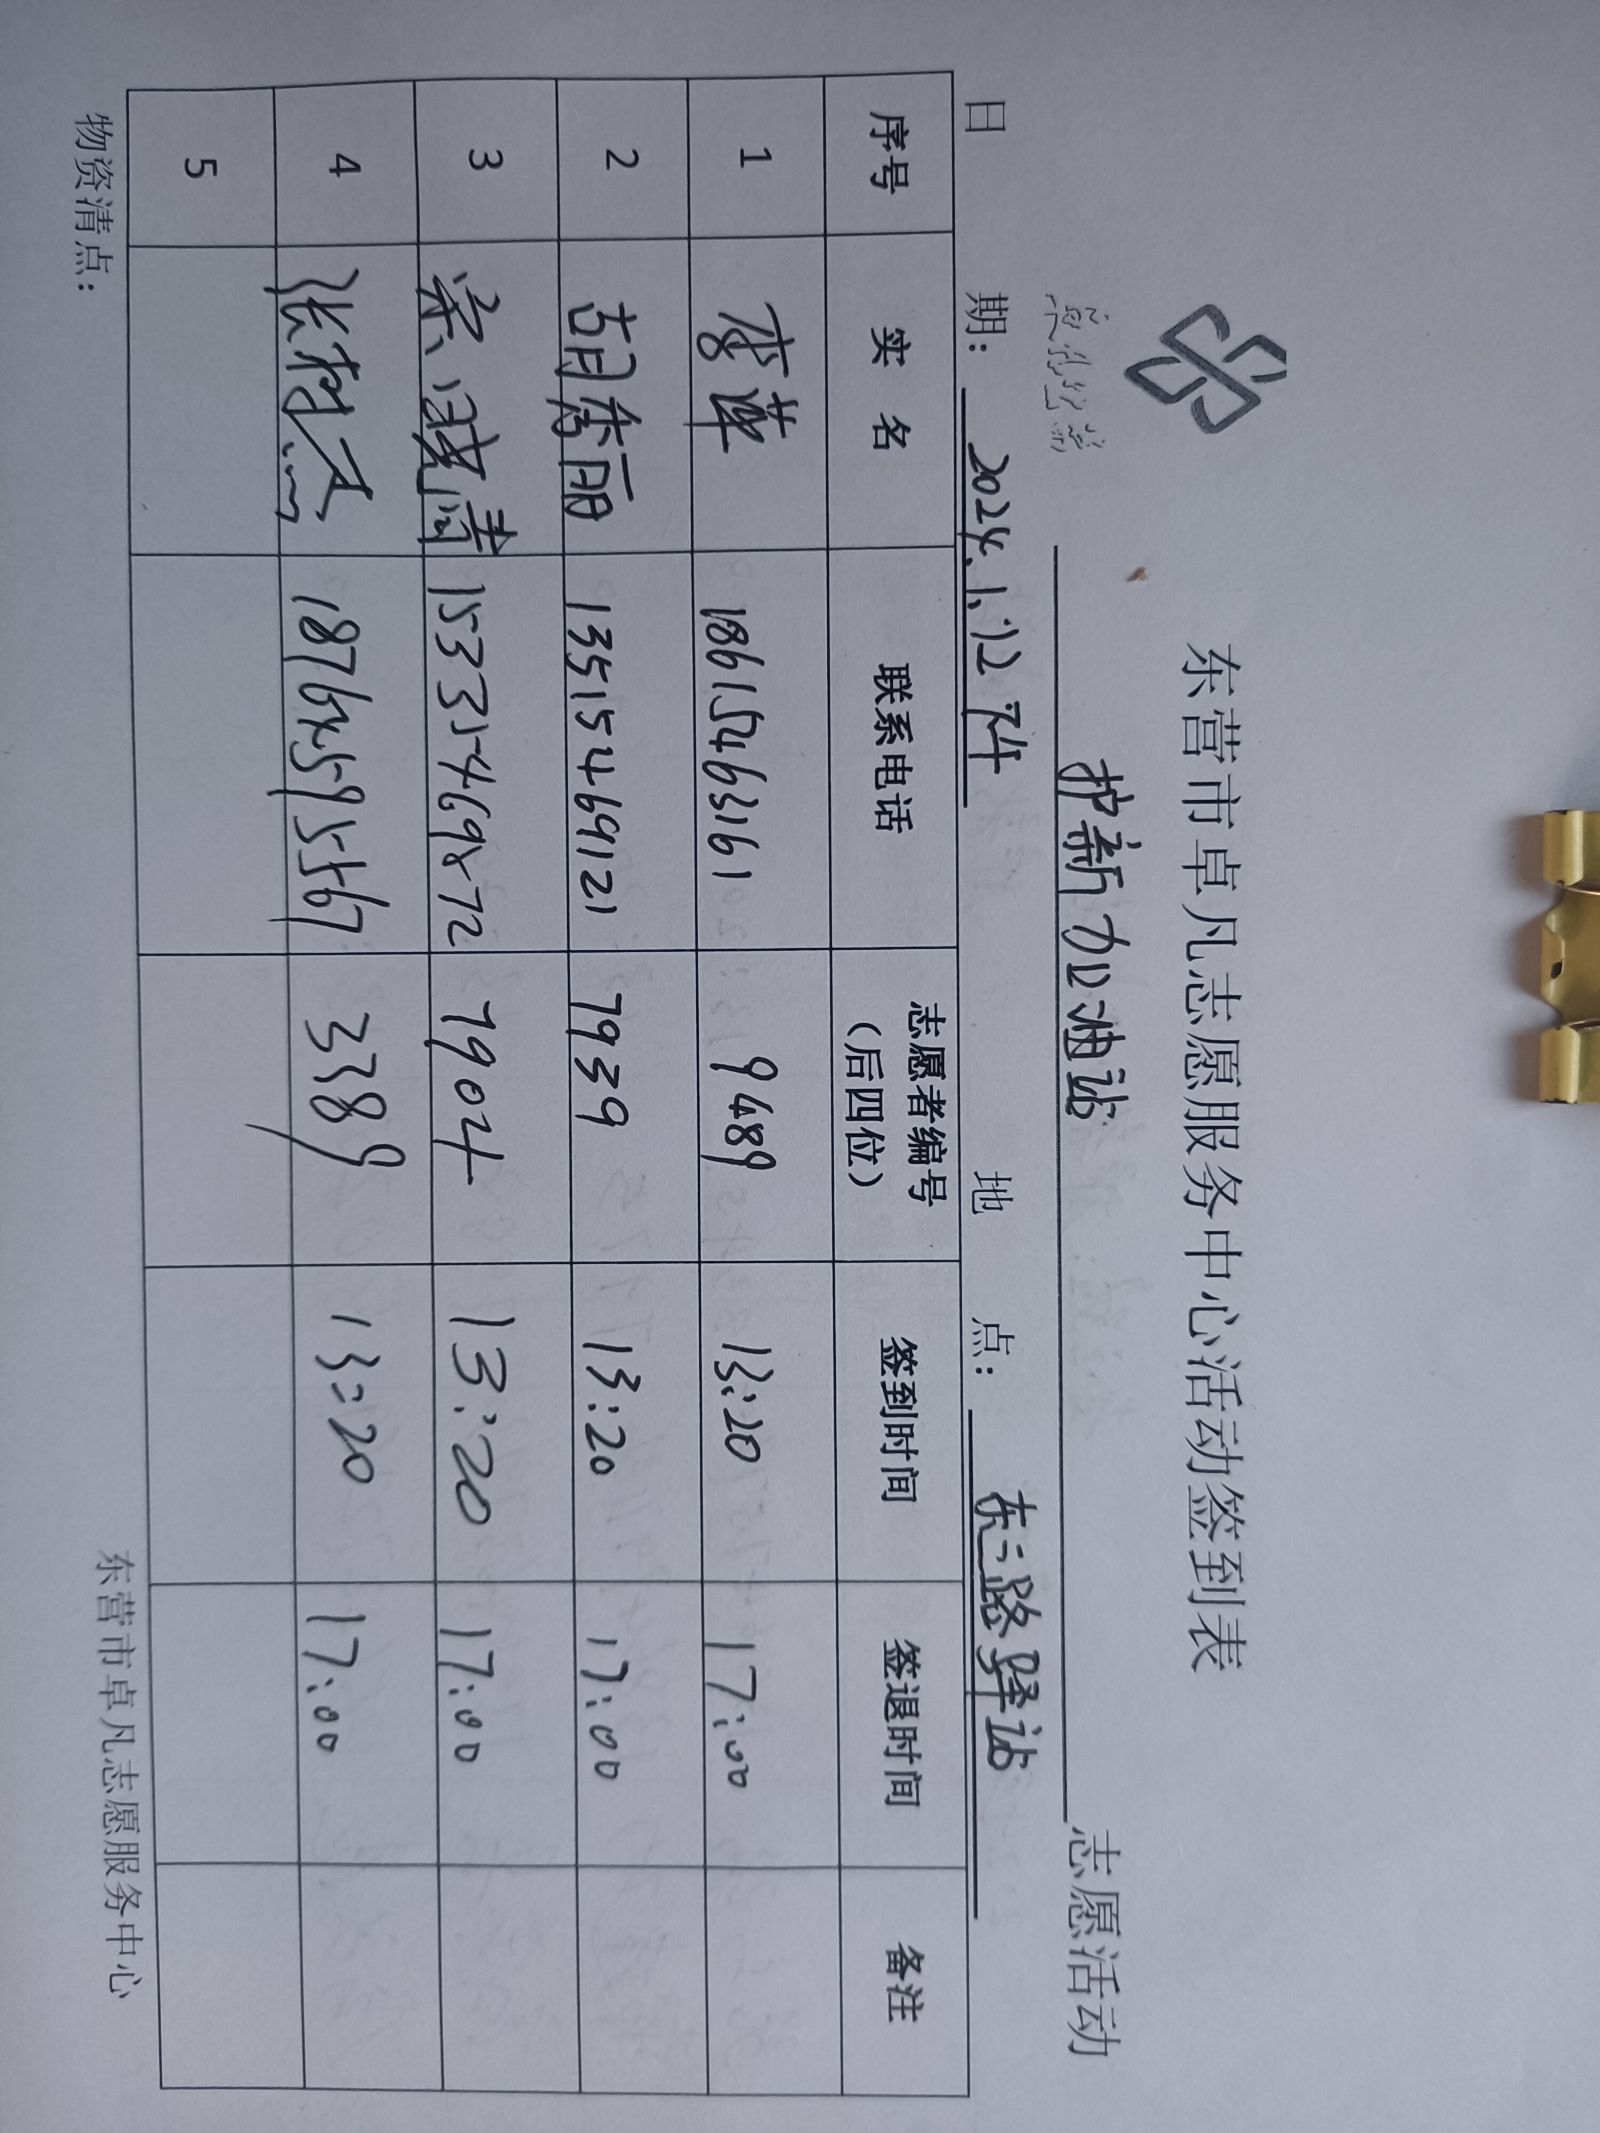 东营市卓凡志愿服务中心活动签到表
护新加油站 志愿活动
日 期： 2024.1.12 下午 地 点： 东二路驿站
序号 实 名 联系电话 志愿者编号（后四位） 签到时间 签退时间 备注
1 李苹 18615463161 9489 13:20 17:00
2 胡秀丽 13515469121 7939 13:20 17:00
3 7904 13:20 17:00
4 3389 13:20 17:00
5
物资清点：
东营市卓凡志愿服务中心